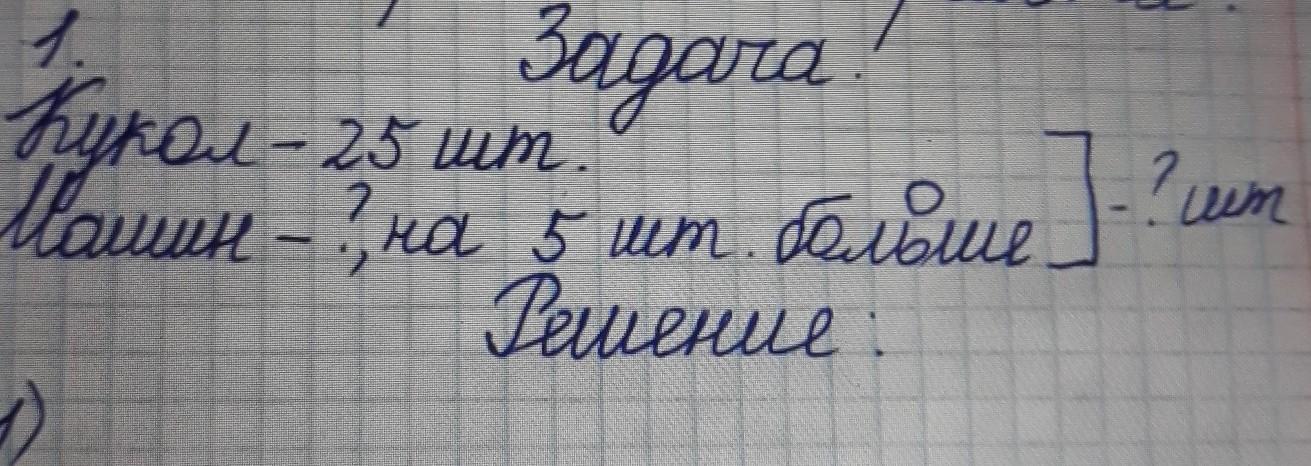 1. Задача.
Кукол - 25 шт.
Машин - ?, на 5 шт. больше ] - ? шт
Решение:
1)